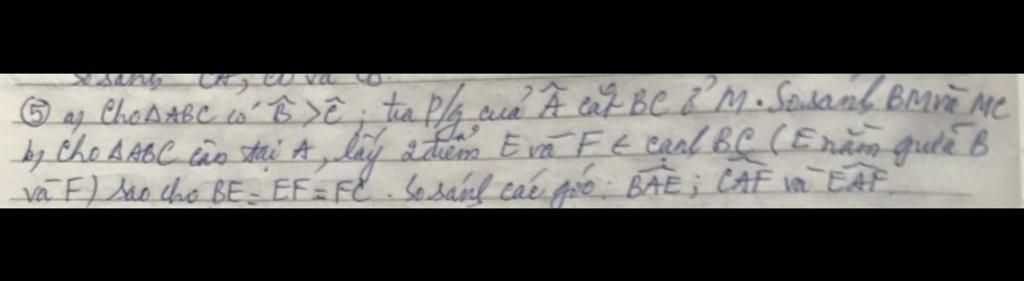 So sánh CA, CD và CB.
⑤ a) Cho ΔABC có B̂ > Ĉ; tia p/g của  cắt BC ở M. So sánh BM và MC
b) Cho ΔABC cân tại A, lấy 2 điểm E và F ∈ cạnh BC (E nằm giữa B
và F) sao cho BE = EF = FC. So sánh các góc: BAE; CAF và EAF.